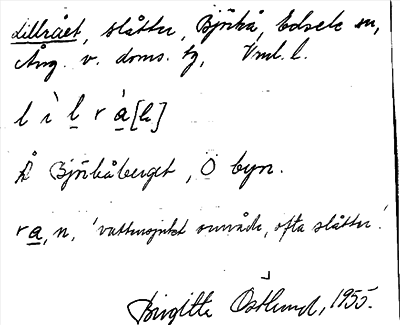 Lillrået, slåtter, Björkå, Edsele sn,
Ång. v. doms. tg, Vml. l.
l ì l r á [h]
Å Björkåberget, Ö byn.
ra, n, 'vattensjukt område, ofta slåtter'.
Birgitta Östlund, 1955.